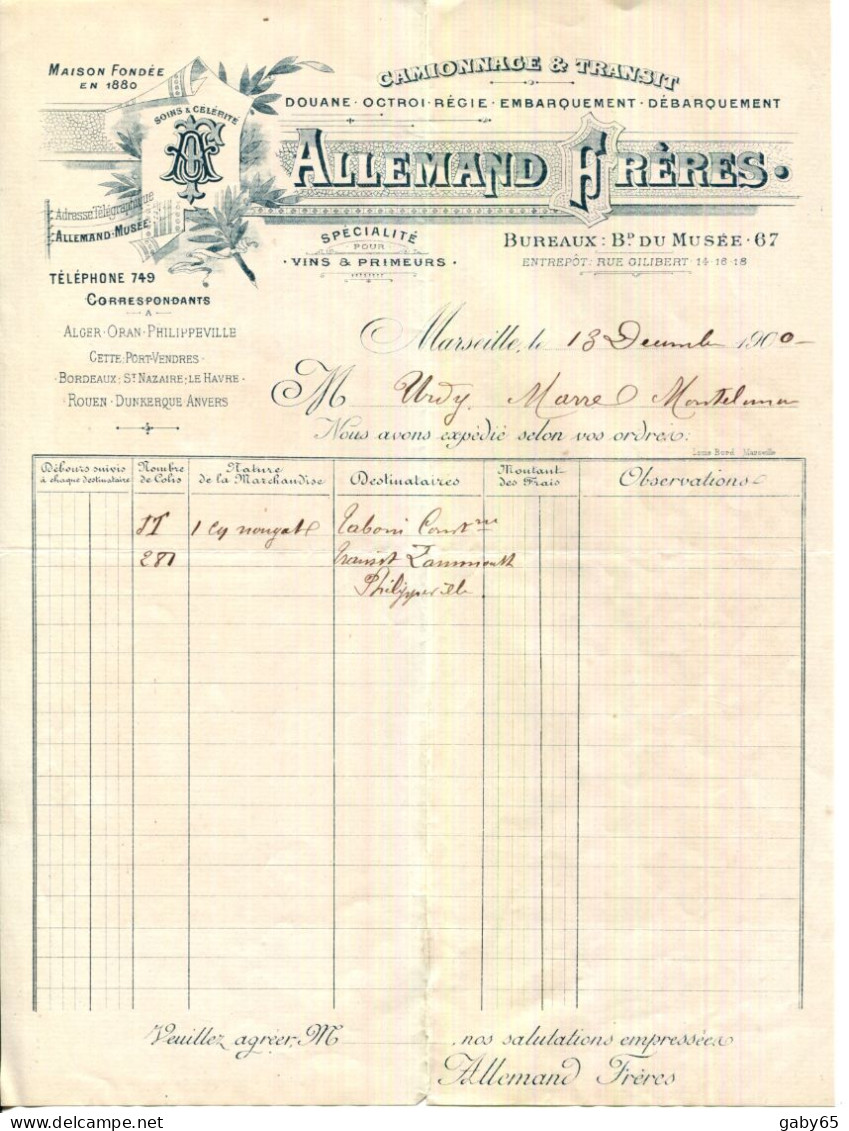 MAISON FONDÉE
EN 1880
SOINS & CÉLÉRITÉ
AF
Adresse Télégraphique
ALLEMAND-MUSÉE
TÉLÉPHONE 749
CORRESPONDANTS
A
ALGER·ORAN·PHILIPPEVILLE
CETTE·PORT-VENDRES·
·BORDEAUX·ST NAZAIRE·LE HAVRE·
ROUEN·DUNKERQUE·ANVERS
CAMIONNAGE & TRANSIT
DOUANE·OCTROI·RÉGIE·EMBARQUEMENT·DÉBARQUEMENT
ALLEMAND FRÈRES·
SPÉCIALITÉ
POUR
·VINS & PRIMEURS·
BUREAUX: BD DU MUSÉE·67
ENTREPÔT: RUE GILIBERT·14·16·18
Marseille, le 13 Decembre 1900
M Urdy Marre Montelimar
Nous avons expédié selon vos ordres:
Marseille
Débours suivis à chaque destinataire
Nombre de Colis
Nature de la Marchandise
Destinataires
Montant des Frais
Observations
1 nougat
281 transit
Philippeville
Veuillez agréer, M nos salutations empressées
Allemand Frères
gaby65